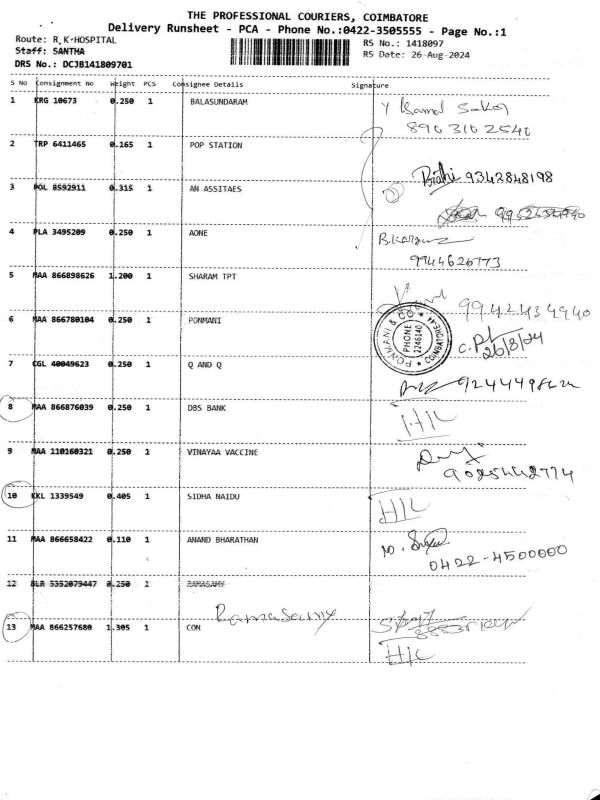 THE PROFESSIONAL COURIERS, COIMBATORE
Delivery Runsheet - PCA - Phone No.:0422-3505555 - Page No.:1
Route: R,K-HOSPITAL
RS No.: 1418097
Staff: SANTHA
RS Date: 26-Aug-2024
DRS No.: DCJB141809701
S No Consignment No Weight PCS Consignee Details Signature
1 KRG 10673 0.250 1 BALASUNDARAM
8963102540
2 TRP 6411465 0.165 1 POP STATION
9342848198
3 POL 8592911 0.315 1 AN ASSITAES
4 PLA 3495209 0.250 1 AONE
9944626773
5 MAA 866898626 1.200 1 SHARAM TPT
9942434940
6 MAA 866780104 0.250 1 PONMANI
PONMANI & CO
PHONE
2246140
COIMBATORE-44
26/8/24
7 CGL 40049623 0.250 1 Q AND Q
8 MAA 866876039 0.250 1 DBS BANK
9 MAA 110160321 0.250 1 VINAYAA VACCINE
10 KKL 1339549 0.405 1 SIDHA NAIDU
11 MAA 866658422 0.110 1 ANAND BHARATHAN
0422-4500000
12 BLR 5352079447 0.250 1 RAMASAMY
Ramasamy
13 MAA 866257680 1.305 1 CON